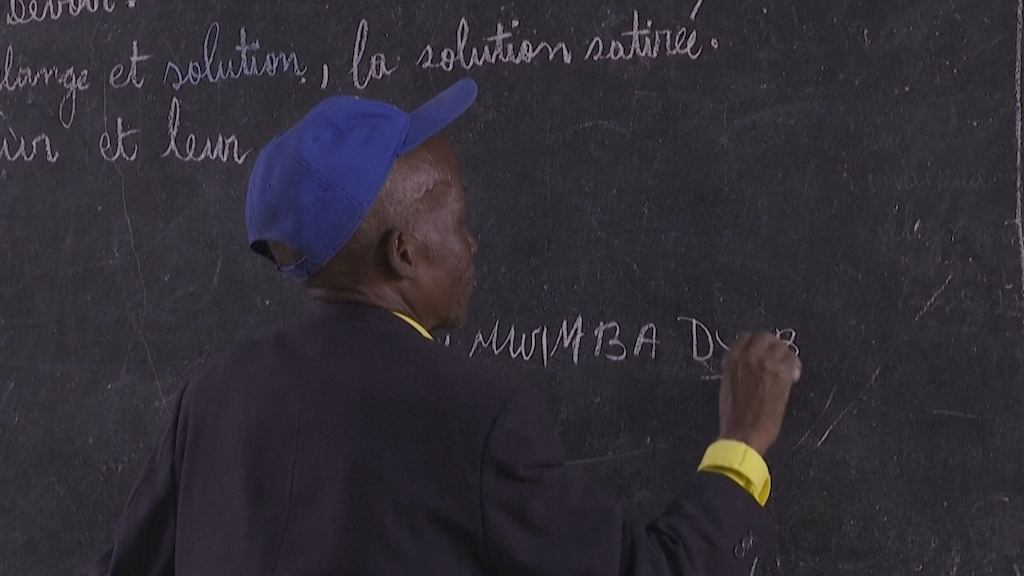 Devoir.
lange et solution, la solution satirée.
et leur
MWIMBA